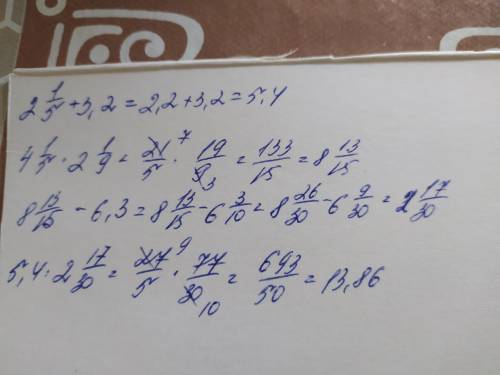 2 1/5 + 3,2 = 2,2 + 3,2 = 5,4
4 1/5 · 2 1/9 = 21/5 7 · 19/9 3 = 133/15 = 8 13/15
8 13/15 - 6,3 = 8 13/15 - 6 3/10 = 8 26/30 - 6 9/30 = 2 17/30
5,4 · 2 17/30 = 27/5 9 · 77/30 10 = 693/50 = 13,86